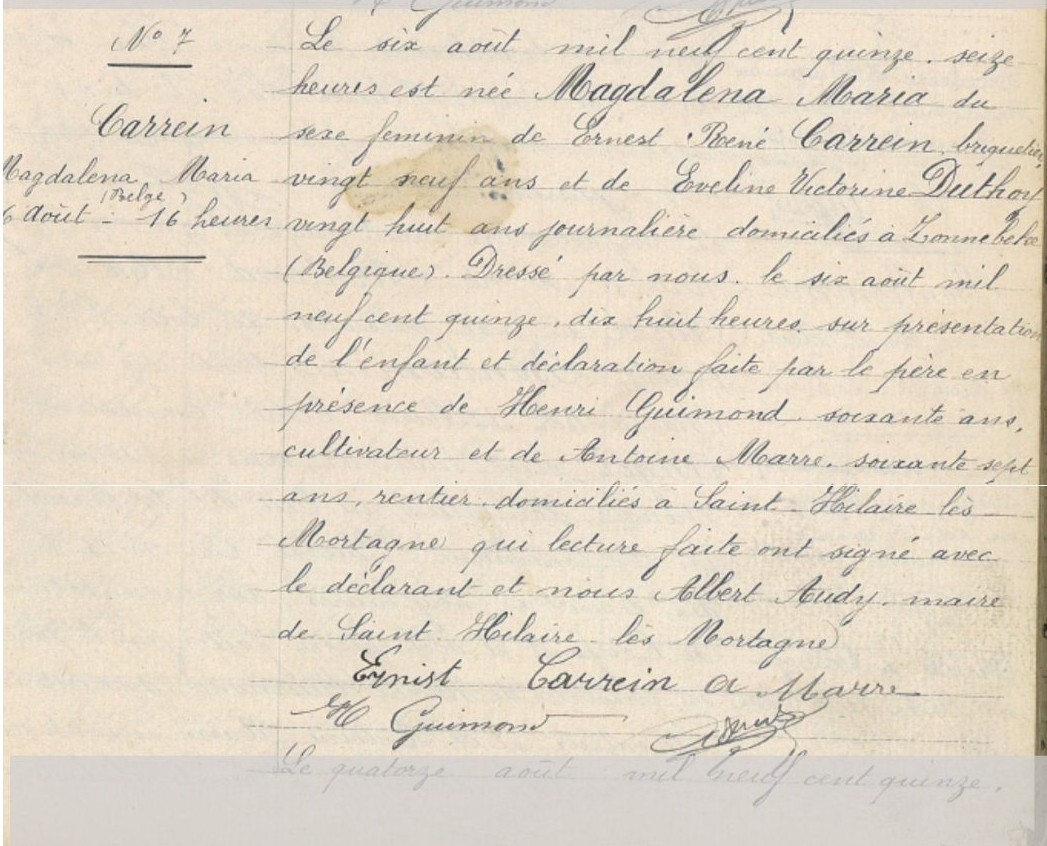 H Guimond
Nº 7
Carrein
Magdalena Maria
(Belge)
6 août - 16 heures
Le six août mil neuf cent quinze. seize
heures est née Magdalena Maria du
sexe feminin de Ernest René Carrein, briquetier,
vingt neuf ans et de Eveline Victorine Duthoy
vingt huit ans journalière domiciliés à Zonnebeke
(Belgique). Dressé par nous. le six août mil
neuf cent quinze, dix huit heures, sur présentation
de l'enfant et déclaration faite par le père en
présence de Henri Guimond. soixante ans,
cultivateur et de Antoine Marre. soixante sept
ans, rentier. domiciliés à Saint-Hilaire lès
Mortagne qui lecture faite ont signé avec
le déclarant et nous Albert Audy. maire
de Saint-Hilaire-lès Mortagne
Ernist Carrein A Marre
H Guimond
Le quatorze août mil neuf cent quinze.